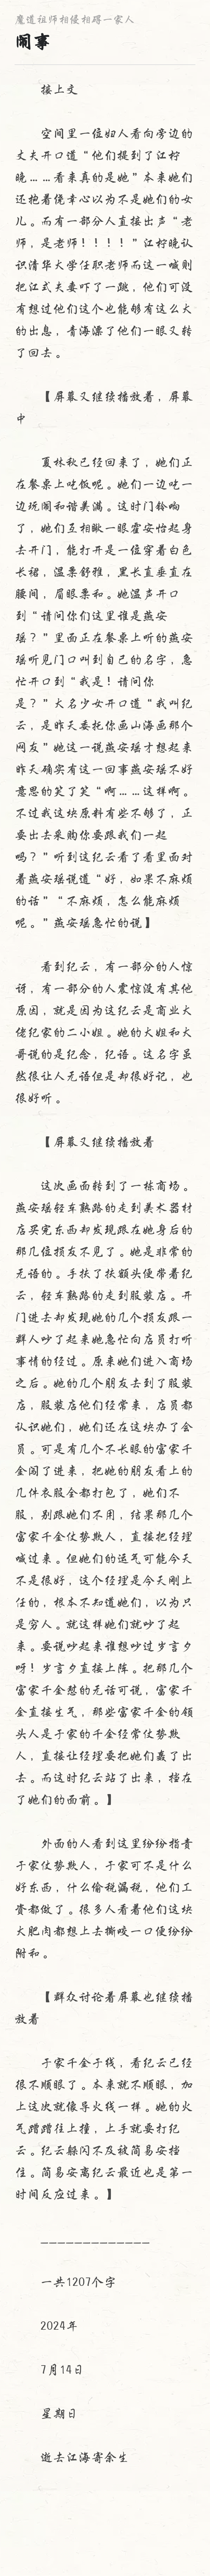 魔道祖师相侵相碍一家人
闹事
接上文
空间里一位妇人看向旁边的
丈夫开口道“他们提到了江柠
晚……看来真的是她”本来她们
还抱着侥幸心以为不是她们的女
儿。而有一部分人直接出声“老
师，是老师！！！！”江柠晚认
识清华大学任职老师而这一喊则
把江式夫妻吓了一跳，他们可没
有想过他们这个也能够有这么大
的出息，青海漂了他们一眼又转
了回去。
【屏幕又继续播放着，屏幕
中
夏林秋已经回来了，她们正
在餐桌上吃饭呢。她们一边吃一
边玩闹和谐美满。这时门铃响
了，她们互相瞅一眼霍安怡起身
去开门，能打开是一位穿着白色
长裙，温柔舒雅，黑长直垂直在
腰间，眉眼柔和。她温声开口
到“请问你们这里谁是燕安
瑶？”里面正在餐桌上听的燕安
瑶听见门口叫到自己的名字，急
忙开口到“我是！请问你
是？”大名少女开口道“我叫纪
云，是昨天委托你画山海画那个
网友”她这一说燕安瑶才想起来
昨天确实有这一回事燕安瑶不好
意思的笑了笑“啊……这样啊。
不过我这块原料有些不够了，正
要出去采购你要跟我们一起
吗？”听到这纪云看了看里面对
着燕安瑶说道“好，如果不麻烦
的话”“不麻烦，怎么能麻烦
呢。”燕安瑶急忙的说】
看到纪云，有一部分的人惊
讶，有一部分的人震惊没有其他
原因，就是因为这纪云是商业大
佬纪家的二小姐。她的大姐和大
哥说的是纪念，纪语。这名字虽
然很让人无语但是却很好记，也
很好听。
【屏幕又继续播放着
这次画面转到了一栋商场。
燕安瑶轻车熟路的走到美术器材
店买完东西却发现跟在她身后的
那几位损友不见了。她是非常的
无语的。手扶了扶额头便带着纪
云，轻车熟路的走到服装店。开
门进去却发现她的几个损友跟一
群人吵了起来她急忙向店员打听
事情的经过。原来她们进入商场
之后。她的几个朋友去到了服装
店，服装店他们经常来，店员都
认识她们，她们还在这块办了会
员。可是有几个不长眼的富家千
金闯了进来，把她的朋友看上的
几件衣服全都打包了，她们不
服，别跟她们不用，结果那几个
富家千金仗势欺人，直接把经理
喊过来。但她们的运气可能今天
不是很好，这个经理是今天刚上
任的，根本不知道她们，以为只
是穷人。就这样她们就吵了起
来。要说吵起来谁想吵过步言夕
呀！步言夕直接上阵。把那几个
富家千金怼的无话可说，富家千
金直接生气，那些富家千金的领
头人是于家的千金经常仗势欺
人，直接让经理要把她们轰了出
去。而这时纪云站了出来，挡在
了她们的面前。】
外面的人看到这里纷纷指责
于家仗势欺人，于家可不是什么
好东西，什么偷税漏税，他们工
资都做了。很多人看着他们这块
大肥肉都想上去撕咬一口便纷纷
附和。
【群众讨论着屏幕也继续播
放着
于家千金于线，看纪云已经
很不顺眼了。本来就不顺眼，加
上这次就像导火线一样。她的火
气蹭蹭往上撞，上手就要打纪
云。纪云躲闪不及被简易安挡
住。简易安离纪云最近也是第一
时间反应过来。】
—————————————
一共1207个字
2024年
7月14日
星期日
逝去江海寄余生